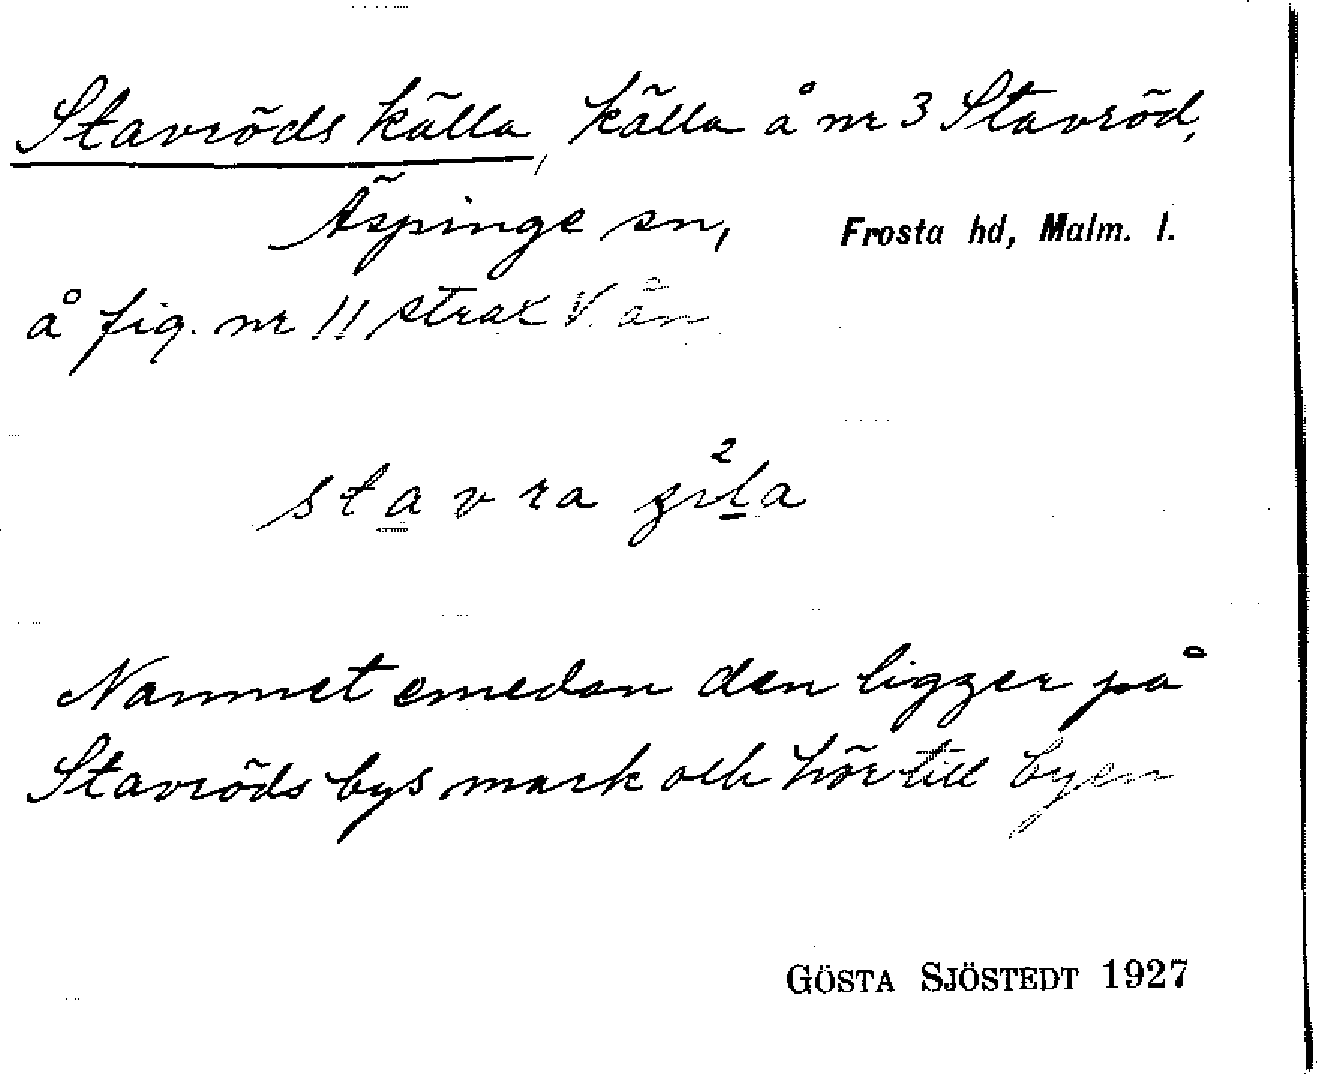 Stavröds källa, källa å nr 3 Stavröd,
Äspinge sn, Frosta hd, Malm. l.
å fig. nr 11 strax V. ån
stavra
Namnet emedan den ligger på
Stavröds bys mark och hör till byen
GÖSTA SJÖSTEDT 1927